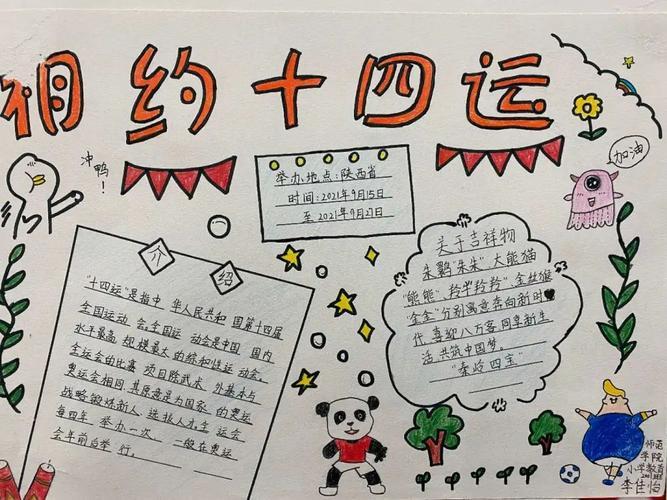 相约十四运
冲鸭!
加油
举办地点:陕西省
时间:2021年9月15日
至2021年9月27日
介绍
"十四运"是指中 华人民共和 国第十四届
全国运动 会。全国运 动会是中国 国内
水平最高 规模最大 的综和性运 动会。
全运会的比赛 项目除武术 外基本与
奥运会相同 其原意是为国家 的奥运
战略锻炼新人 选拔人才全 运会
每四年 举办一次, 一般在奥运
会年前后举 行。
关于吉祥物
朱鹮"朱朱"大熊猫
"熊能"、羚羊羚羚"、金丝猴
金金"分别寓意奔向新时
代 喜迎八方客 同享新生
活 共筑中国梦。
"秦岭四宝"
师范
学院
小学教育
李佳怡